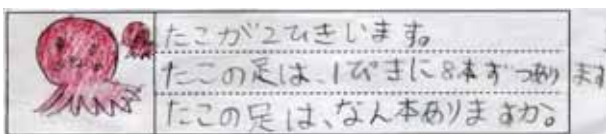 たこが2ひきいます。
たこの足は、1ぴきに8本ずつあります
たこの足は、なん本ありますか。